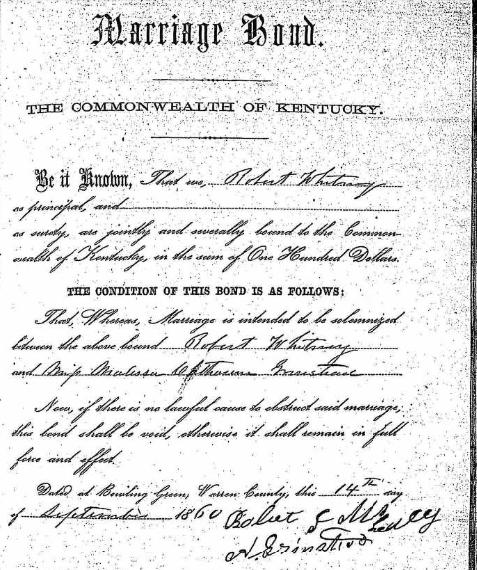 Marriage Bond.
THE COMMONWEALTH OF KENTUCKY.
Be it Known, That we, Robert Whitney
as principal, and
as surety, are jointly and severally bound to the Common-
wealth of Kentucky, in the sum of One Hundred Dollars.
THE CONDITION OF THIS BOND IS AS FOLLOWS:
That, Whereas, Marriage is intended to be solemnized
between the above bound Robert Whitney
and Miss
Now, if there is no lawful cause to obstruct said marriage,
this bond shall be void, otherwise it shall remain in full
force and effect.
Dated at Bowling Green, Warren County, this 14th day
of September 1860